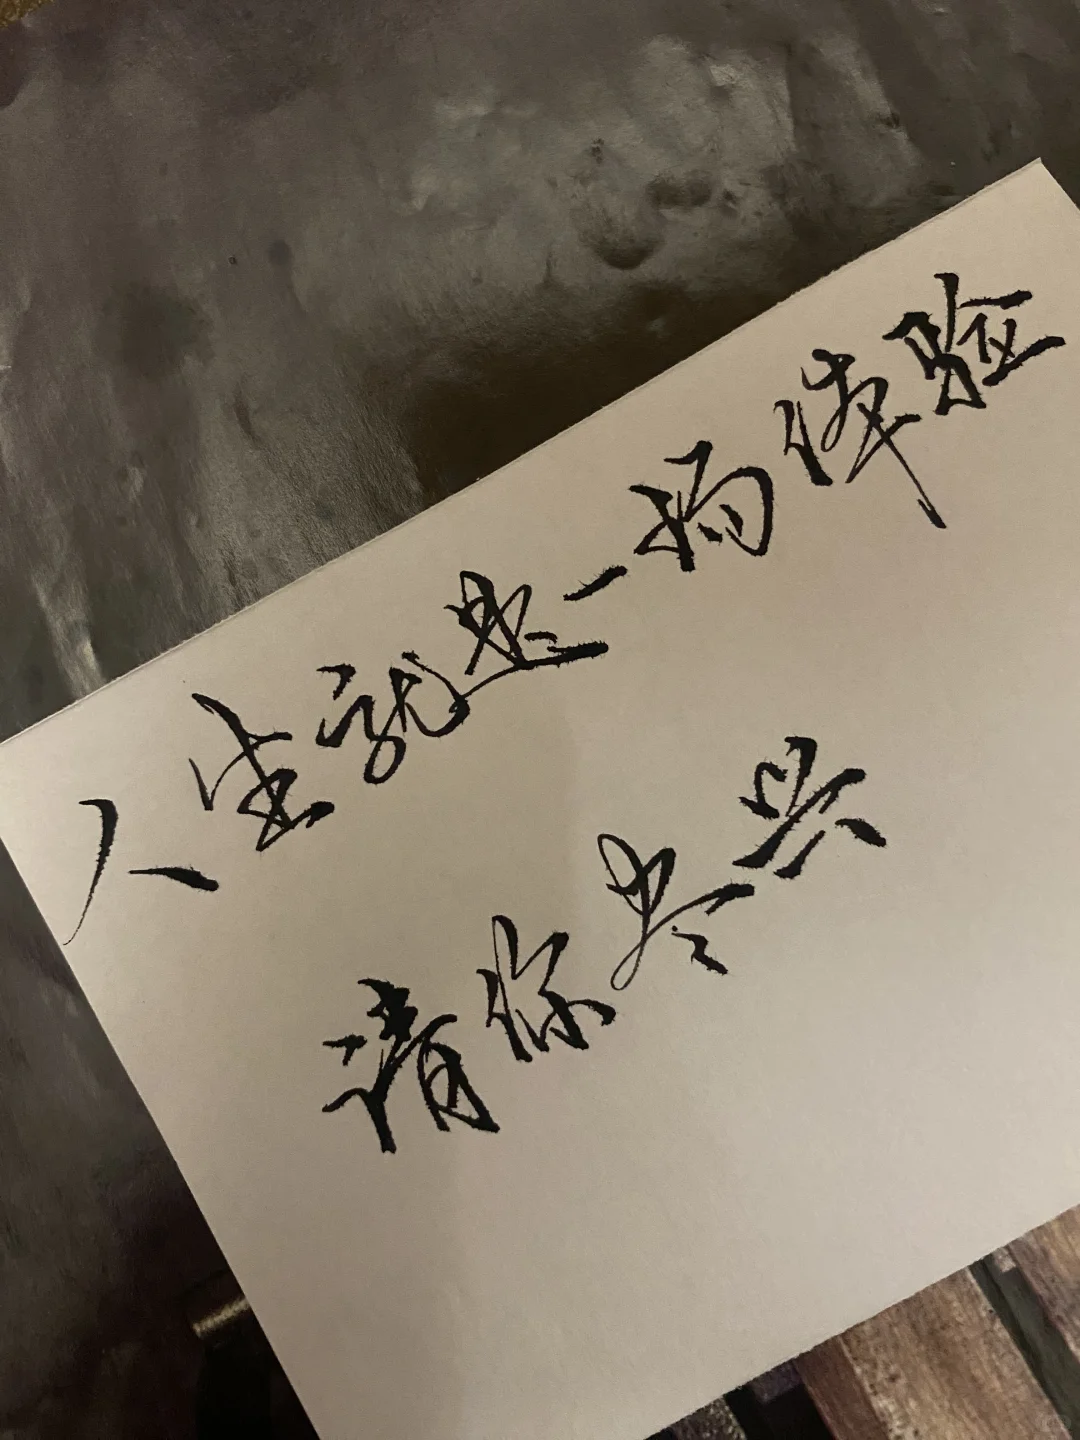 人生就是一场体验
请你尽兴